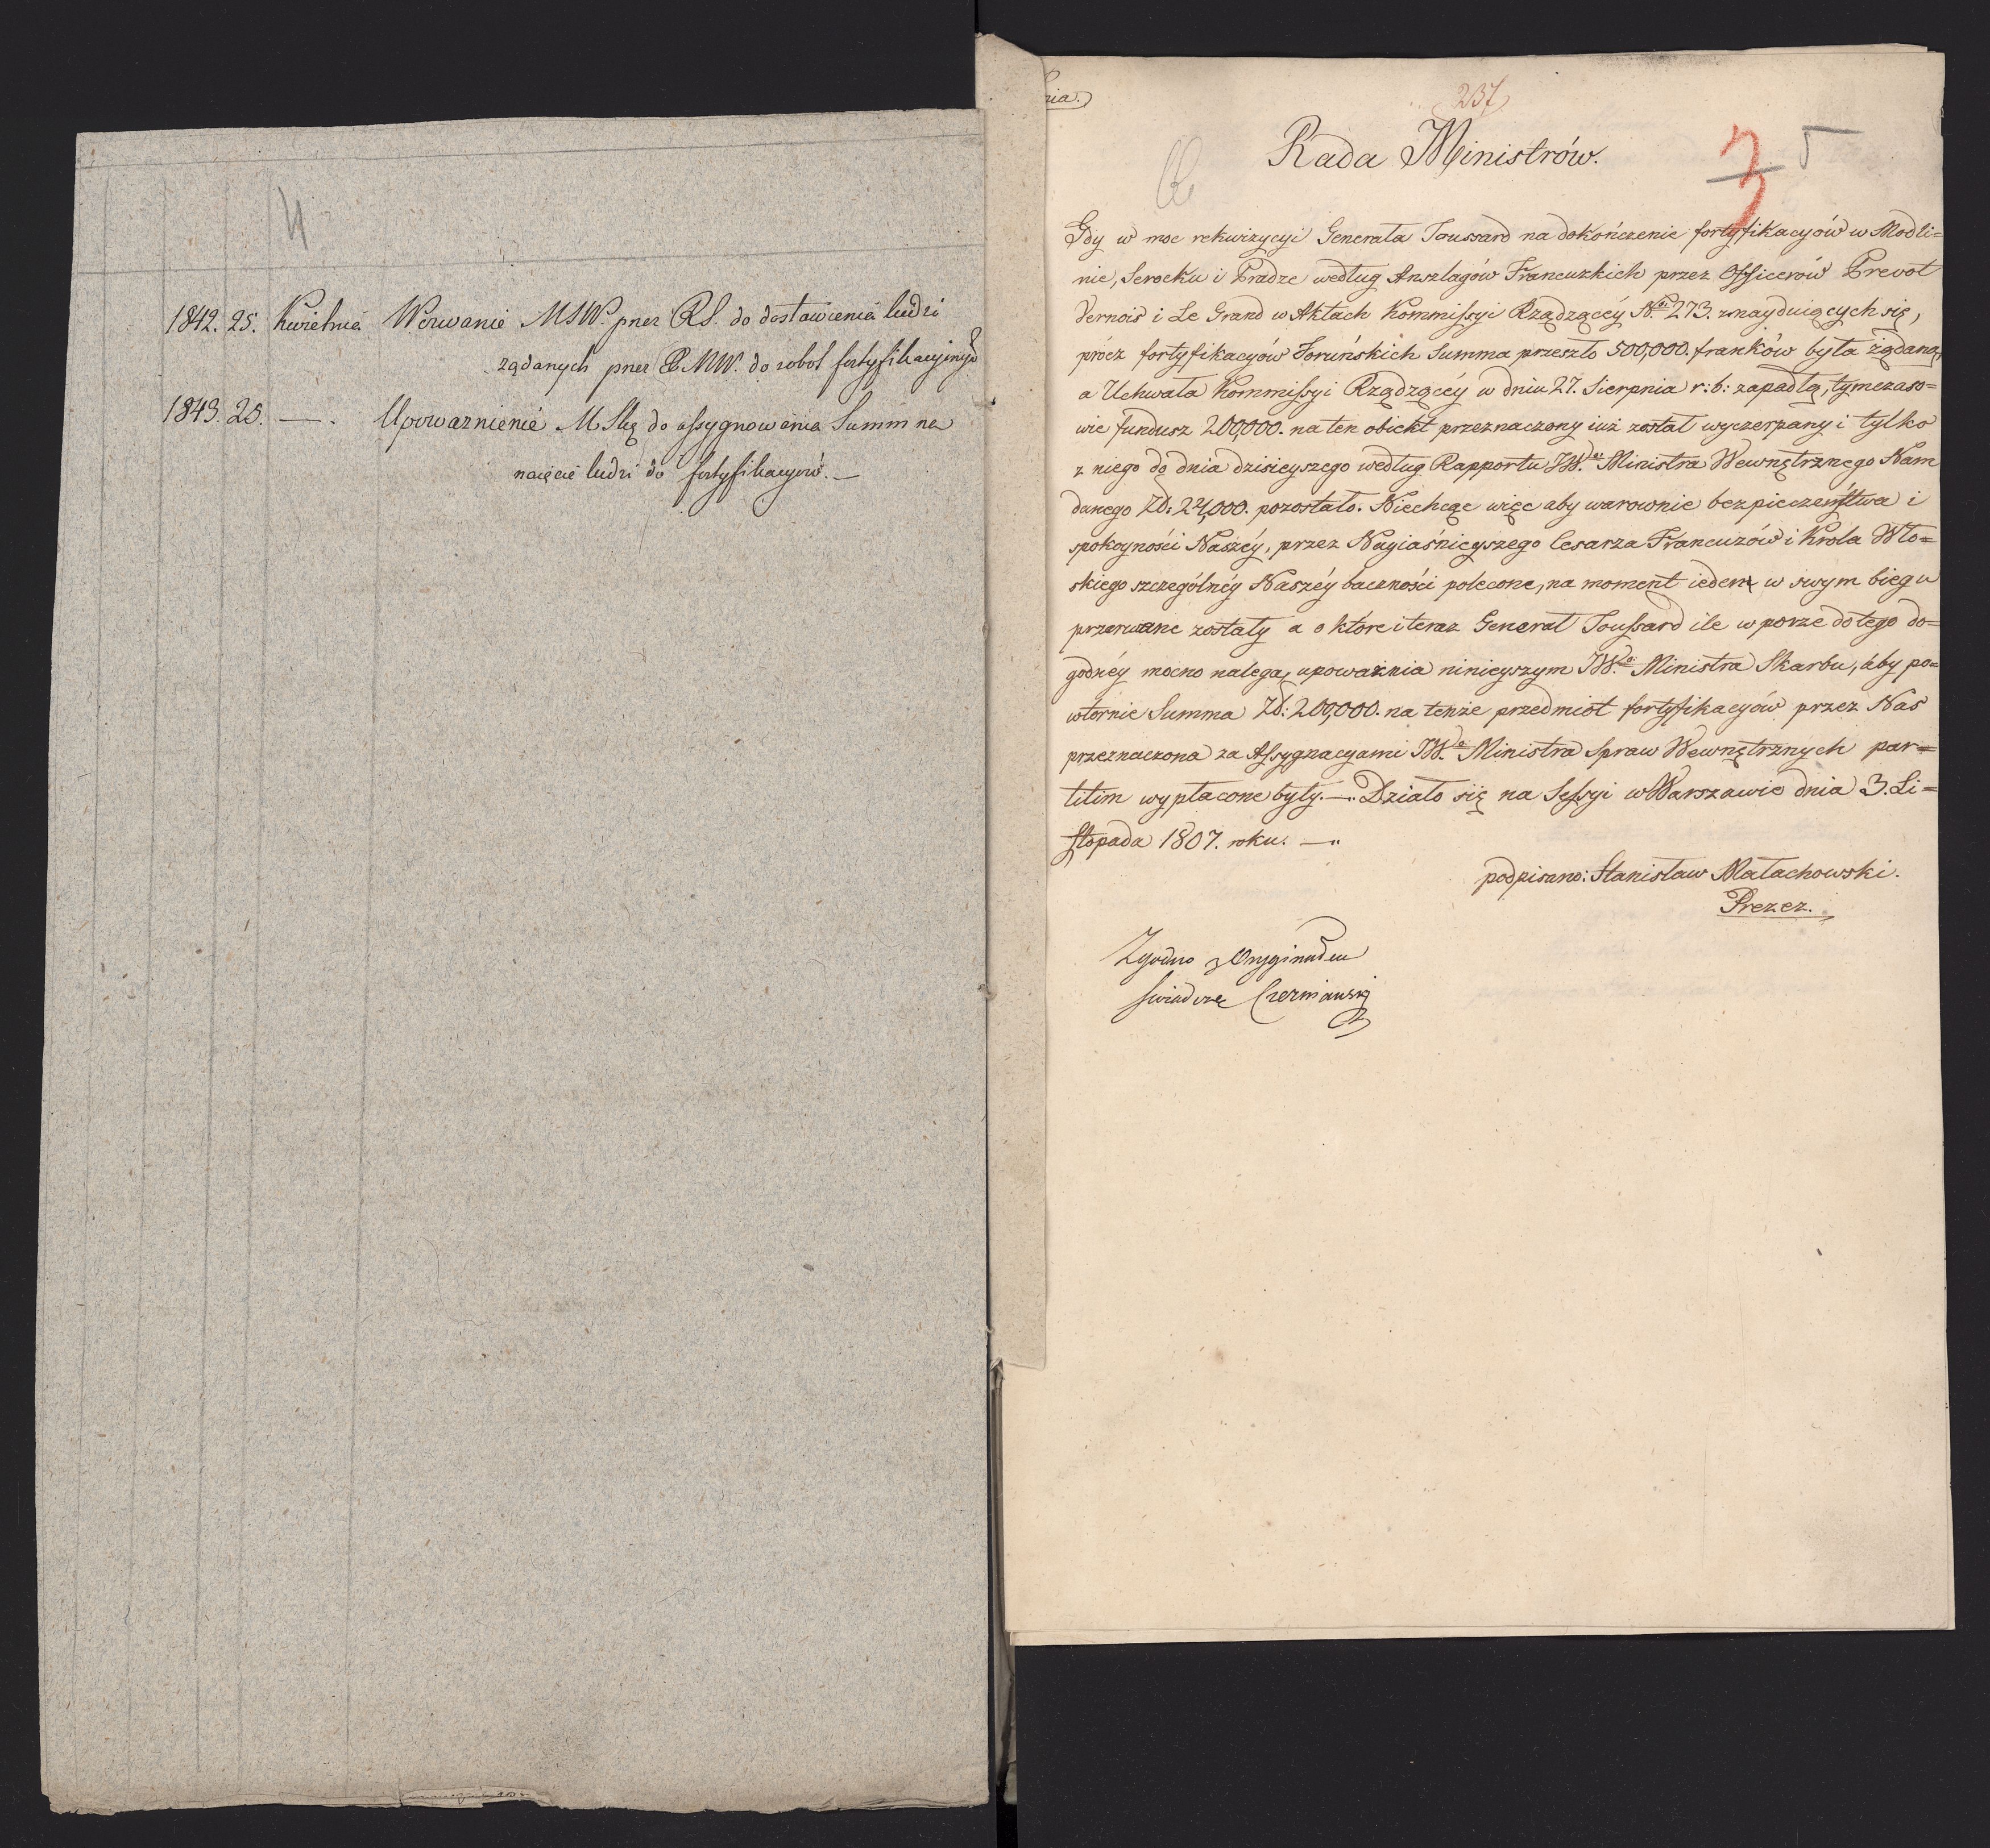 4
1842. 25. Kwietnia Wezwanie MSW. przez RS. do dostawienia ludzi
żądanych przez MW. do robot fortyfikacyinych
1843. 25. — . Upoważnienie M Sku do assygnowania Summ na
naięcie ludzi do fortyfikacyów. —
nia.
237
Rada Ministrów.
3 5
Gdy w moc rekwizycyi Generała Toussard na dokończenie fortyfikacyów w Modli=
nie, Serocku i Pradze według Anszlagów Francuzkich przez Officerów Prevot
Vernois i Le Grand w Aktach Kommissyi Rządzącéy N.ro 273. znayduiących się,
prócz fortyfikacyów Toruńskich Summa przeszło 500,000. franków była żądaną,
a Uchwałą Kommissyi Rządzącéy w dniu 27. Sierpnia r: b: zapadłą, tymczaso=
wie fundusz 200,000. na ten obiekt przeznaczony iuż został wyczerpany i tylko
z niego do dnia dzisieyszego według Rapportu JW. Ministra Wewnętrznego Nam
danego Zł: 24,000. pozostało. Niechcąc więc aby warownie bezpieczeństwa i
spokoyności Naszéy, przez Nayiaśnieyszego Cesarza Francuzów i Krola Wło=
skiego szczególnéy Naszéy baczności polecone, na moment ieden w swym biegu
przerwane zostały a o które i teraz Generał Toussard ile w porze do tego do=
godnéy mocno nalega, upoważnia ninieyszym JW. Ministra Skarbu, áby po=
wtórnie Summa Zł: 200,000. na tenże przedmiot fortyfikacyów przez Nas
przeznaczona za Assygnacyami JW. Ministra Spraw Wewnętrznych par=
titim wypłacone były. — Działo się na Sessyi w Warszawie dnia 3. Li=
stopada 1807. roku. —
podpisano: Stanisław Małachowski.
Prezez.
Zgodno z Oryginałem
świadczę Czermiński